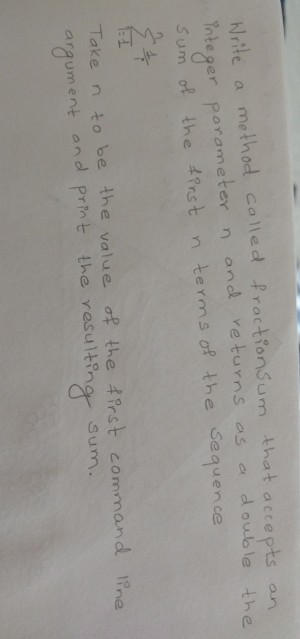 Write a method called fractionSum that accepts an
integer parameter n and returns as a double the
sum of the first n terms of the sequence
n
∑ 1/i
i=1
Take n to be the value of the first command line
argument and print the resulting sum.